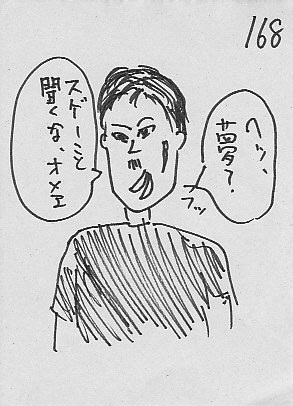 168
ヘッ、
夢?
フッ
スゲーこと
聞くな、オメエ